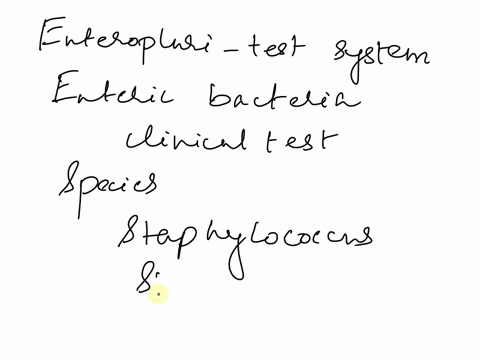 Enteropluri - test system
Enteric bacteria
clinical test
Species
Staphylococcus
S